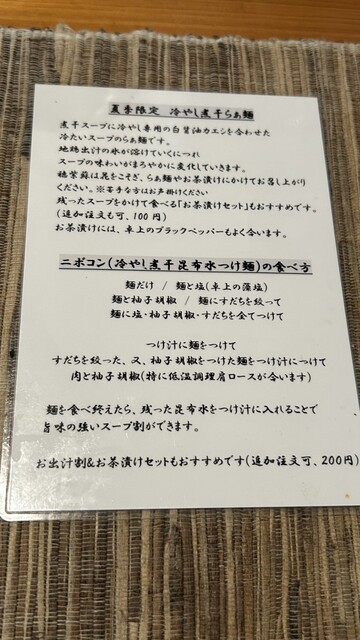 夏季限定　冷やし煮干らぁ麺
煮干スープに冷やし専用の白醤油カエシを合わせた
冷たいスープのらぁ麺です。
地鶏出汁の氷が溶けていくにつれ
スープの味わいがまろやかに変化していきます。
穂紫蘇は花をこそぎ、らぁ麺やお茶漬けにかけてお召し上がり
ください。※苦手な方はお声掛けください
残ったスープをかけて食べる「お茶漬けセット」もおすすめです。
(追加注文も可、100円)
お茶漬けには、卓上のブラックペッパーもよく合います。
ニボコン(冷やし煮干昆布水つけ麺)の食べ方
麺だけ / 麺と塩(卓上の藻塩)
麺と柚子胡椒 / 麺にすだちを絞って
麺に塩・柚子胡椒・すだちを全てつけて
つけ汁に麺をつけて
すだちを絞った、又、柚子胡椒をつけた麺をつけ汁につけて
肉と柚子胡椒(特に低温調理肩ロースが合います)
麺を食べ終えたら、残った昆布水をつけ汁に入れることで
旨味の強いスープ割ができます。
お出汁割&お茶漬けセットもおすすめです(追加注文可、200円)